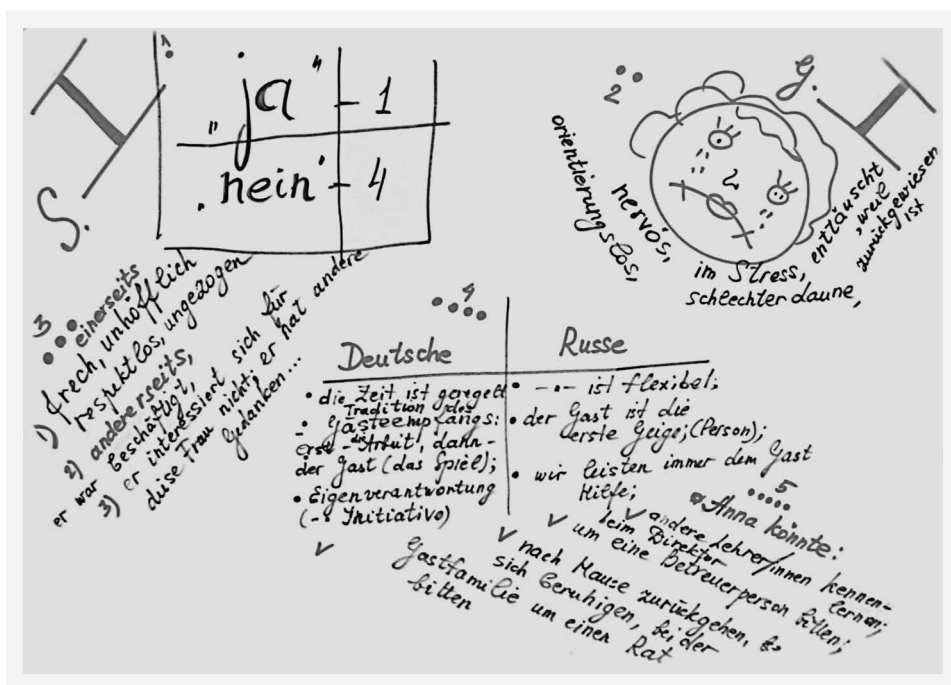 S.
1
"ja" - 1
"nein" - 4
2
G.
orientierungslos,
nervös,
im Stress,
schlechter daune,
enttäuscht
, weil
zurückgewiesen
ist
3
einerseits
1) frech, unhöfflich
respektlos, ungezogen
2) andererseits,
er war beschäftigt,
3) er interessiert sich für
diese Frau nicht; er hat andere
Gedanken...
4
Deutsche
• die Zeit ist geregelt
• Tradition des
Gästeempfangs:
erst - die Arbeit, dahn -
der Gast (das Spiel);
• Eigenverantwortung
(-» Initiativo)
Russe
• -"- ist flexibel;
• der Gast ist die
erste Geige; (Person);
• wir leisten immer dem Gast
Hilfe;
5
Anna könnte:
✓ andere Lehrer/innen kennen-
lernen;
✓ beim Direktor
um eine Betreuerperson bitten;
✓ nach Hause zurückgehen,
sich beruhigen, bei der
✓ Gastfamilie um einen Rat
bitten